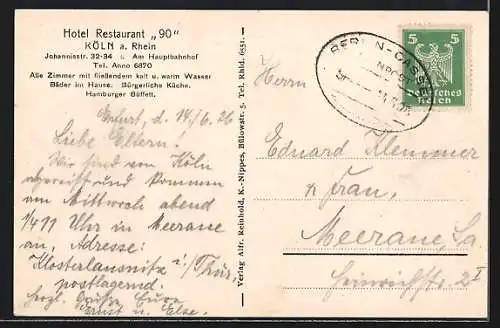 Hotel Restaurant „90"
KÖLN a. Rhein
Johannisstr. 32-34 :: Am Hauptbahnhof
Tel. Anno 6870
Alle Zimmer mit fließendem kalt u. warm Wasser
Bäder im Hause. Bürgerliche Küche.
Hamburger Büffett.
Erfurt, d. 14./6. 26
Liebe Eltern!
Wir sind von Köln
abgereist und kommen
am Mittwoch abend
1/4 11 Uhr in Meerane
an, Adresse:
Klosterlausnitz i/Thür.
postlagernd.
herzl. Grüße Eure
Ernst u. Else.
Verlag Alfr. Reinhold, K.-Nippes, Bülowstr. 5. Tel. Rhld. 6551.
BERLIN-CASSEL
5 5
Deutsches
Reich
Herrn
Eduard Klemmer
u Frau,
Meerane, Sa.
Heinrichstr. 2 I